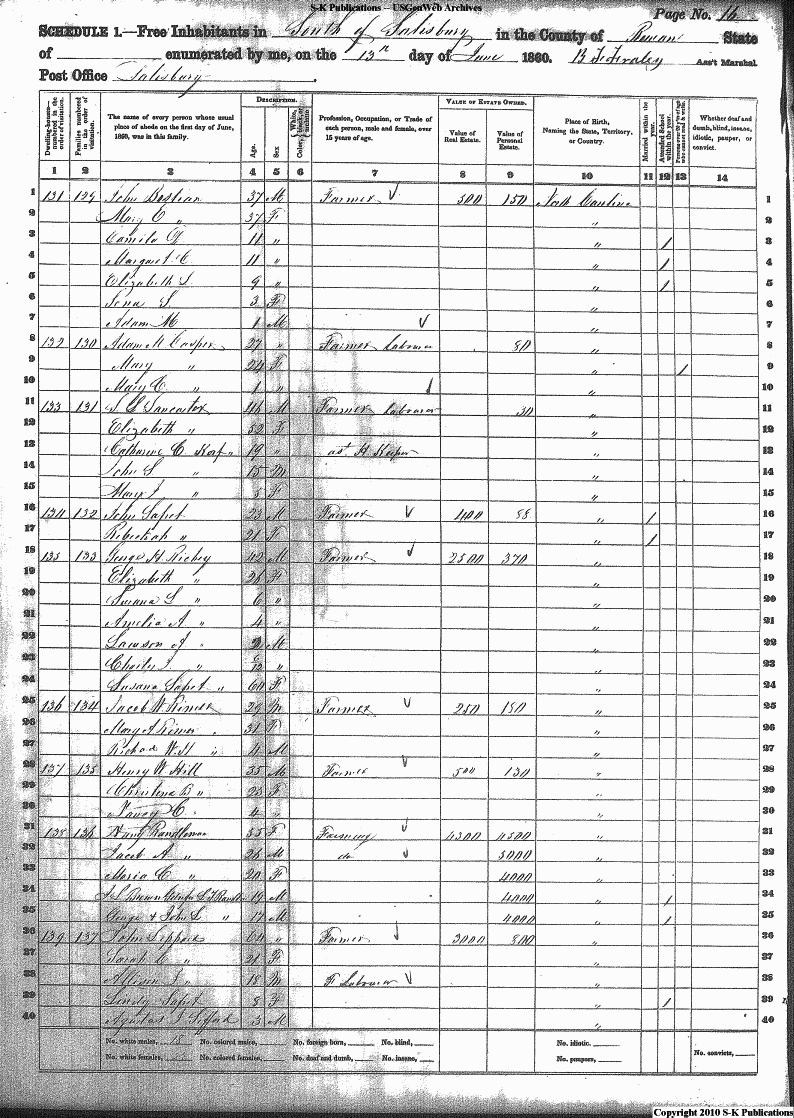 S-K Publications -- USGenWeb Archives
Page No. 16
SCHEDULE 1.—Free Inhabitants in South of Salisbury in the County of Rowan State
of enumerated by me, on the 13th day of June 1860. B F Fraley Ass't Marshal
Post Office Salisbury
Dwelling-houses—numbered in the order of visitation.
Families numbered in the order of visitation.
The name of every person whose usual place of abode on the first day of June, 1860, was in this family.
DESCRIPTION.
Age.
Sex.
White, Color, black, or mulatto.
Profession, Occupation, or Trade of each person, male and female, over 15 years of age.
VALUE OF ESTATE OWNED.
Value of Real Estate.
Value of Personal Estate.
Place of Birth, Naming the State, Territory, or Country.
Married within the year.
Attended School within the year.
Persons over 20 y'rs of age who cannot read & write.
Whether deaf and dumb, blind, insane, idiotic, pauper, or convict.
1 2 3 4 5 6 7 8 9 10 11 12 13 14
1 131 129 John Bostian 37 M Farmer 500 150 North Carolina 1
2 Mary C " 37 F " 2
3 Camila 11 " " / 3
4 Margaret C 11 " " / 4
5 Elizabeth S 9 " " / 5
6 Lena S 3 F " 6
7 Adam M 1 M " 7
8 132 130 Adam M Casper 27 " Farmer Laborer 80 " 8
9 Mary " 24 F " / 9
10 Mary C " 1 " " 10
11 133 131 Lancaster 46 M Farmer Laborer 30 " 11
12 Elizabeth " 52 F " 12
13 Catharine C " 19 " as H Keeper " 13
14 John S " 15 M " 14
15 Mary J " 5 F " 15
16 134 132 John 23 M Farmer 400 88 " / 16
17 Rebeckah " 21 F " / 17
18 135 133 George H Richey 42 M Farmer 2500 370 " 18
19 Elizabeth " 26 F " 19
20 Susana S " 6 " " 20
21 Amelia A " 4 " " 21
22 Lawson J " 2 M " 22
23 Charles J " /12 " " 23
24 Susana " 60 F " 24
25 136 134 Jacob W 29 M Farmer 250 150 " 25
26 Mary A " 31 F " 26
27 Richard W H " 4 M " 27
28 137 135 Henry W Hill 35 M Farmer 500 130 " 28
29 Christina B " 23 F " 29
30 Nancy C " 4 " " 30
31 138 136 Nancy Randleman 55 F Farming 4300 4500 " 31
32 Jacob A " 26 M do 5000 " 32
33 Maria C " 20 F 4000 " 33
34 Brown 19 M 4000 " / 34
35 George & John L " 17 M 4000 " / 35
36 139 137 John 64 " Farmer 3000 800 " 36
37 Sarah C " 21 F " 37
38 J " 18 M F Laborer " 38
39 8 F " / 39
40 J 3 M " 40
No. white males, 18 No. colored males, No. foreign born, No. blind, No. idiotic,
No. white females, 22 No. colored females, No. deaf and dumb, No. insane, No. paupers, No. convicts,
Copyright 2010 S-K Publications